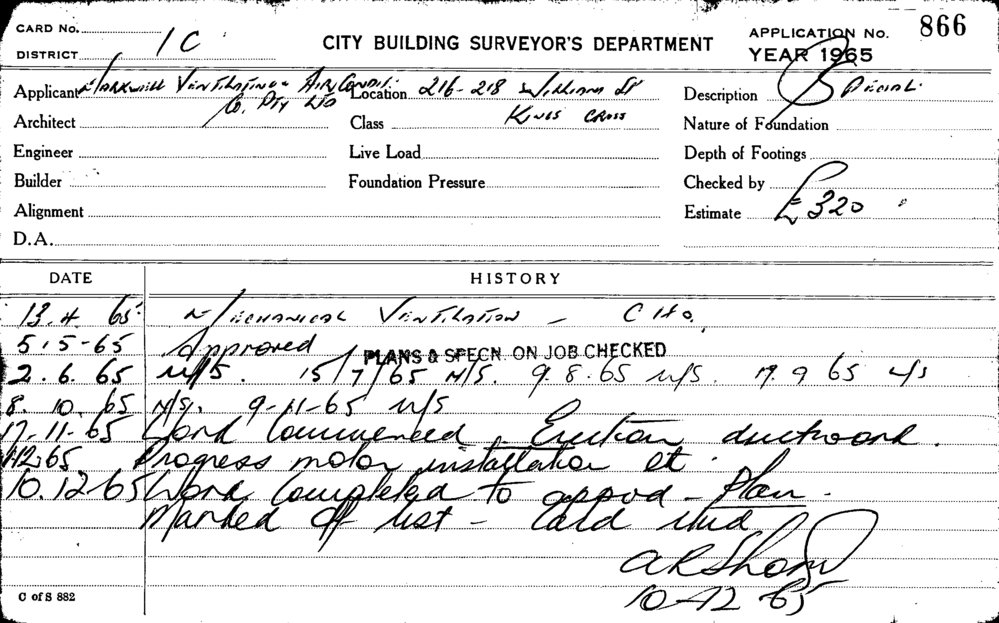 CARD No.
866
APPLICATION No.
DISTRICT 1C
CITY BUILDING SURVEYOR'S DEPARTMENT
YEAR 1965
Applicant Markwell Ventilating & Air Condit. Co. Pty Ltd
Location 216-218 William St Kings Cross
Description Special
Architect
Class
Nature of Foundation
Engineer
Live Load
Depth of Footings
Builder
Foundation Pressure
Checked by
Alignment
Estimate £320
D.A.
DATE HISTORY
13.4.65 Mechanical Ventilation - C Ho.
5.5-65 Approved PLANS & SPECN. ON JOB CHECKED
2.6.65 N/S. 15/7/65 N/S. 9.8.65 N/S. 17.9.65 N/S
8.10.65 N/S. 9-11-65 N/S
17-11-65 Work Commenced. Erection ductwork.
1-12-65 Progress motor installation et
10.12-65 Work Completed to appvd - Plan.
Marked off list - Card
10-12-65
C of S 882